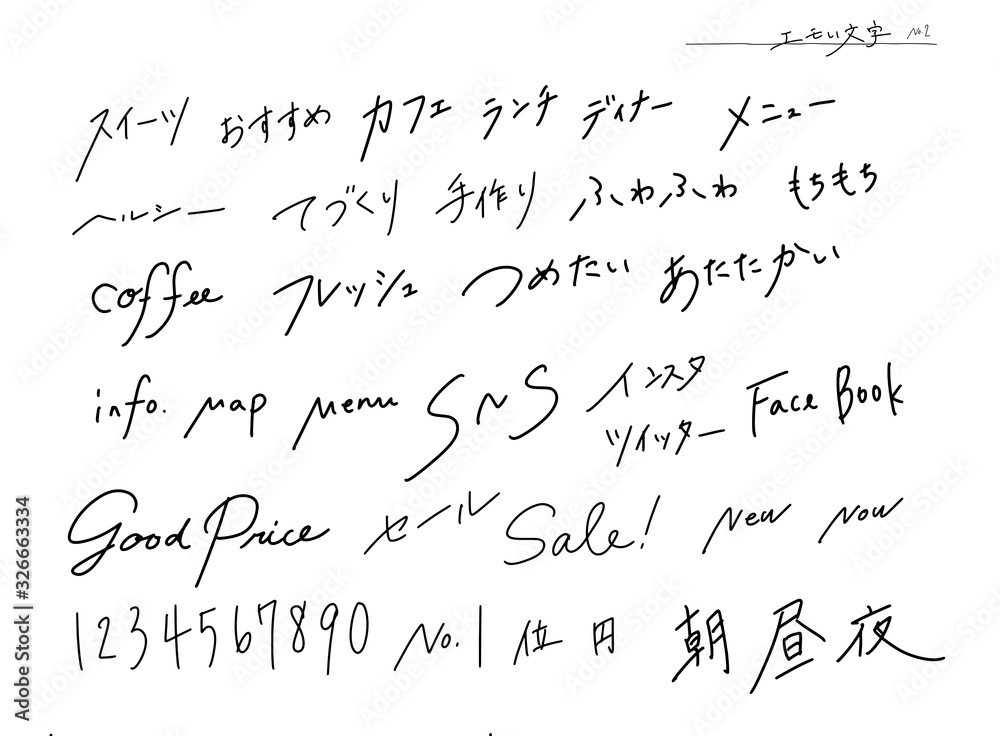 エモい文字 No.2
スイーツ おすすめ カフェ ランチ ディナー メニュー
ヘルシー てづくり 手作り ふわふわ もちもち
coffee フレッシュ つめたい あたたかい
info. map menu SNS インスタ FaceBook
ツイッター
Good Price セール Sale! New Now
1234567890 No.1 位 円 朝 昼 夜
Adobe Stock | #326663334